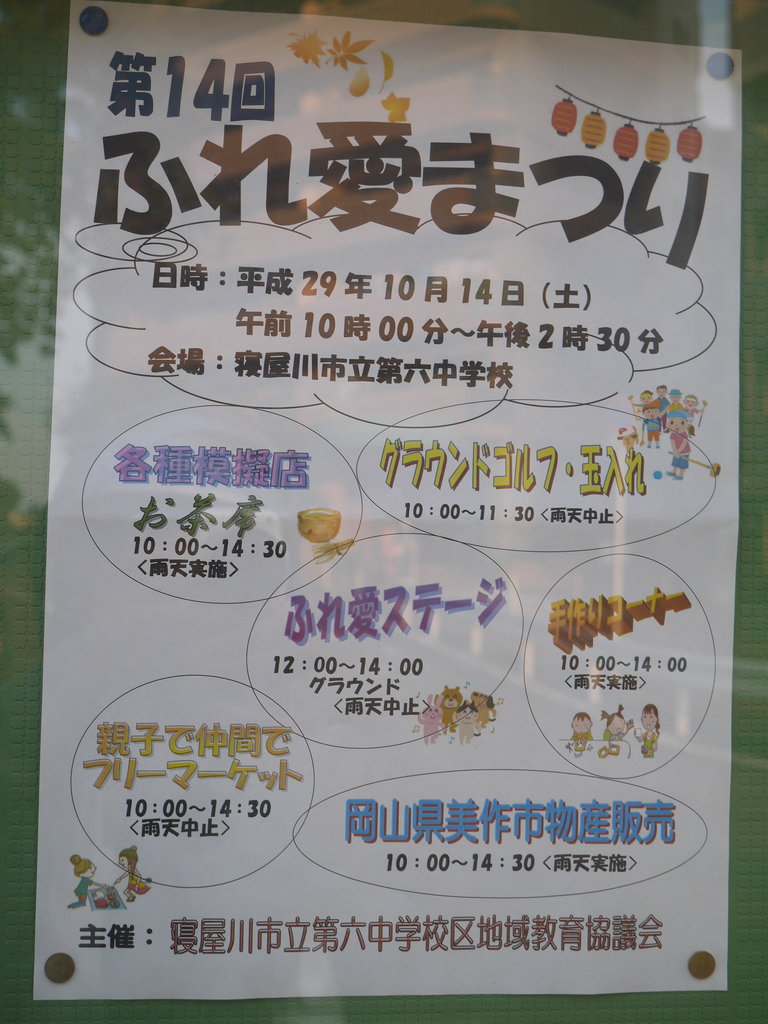 第14回
ふれ愛まつり
日時：平成29年10月14日（土）
午前10時00分～午後2時30分
会場：寝屋川市立第六中学校
各種模擬店
お茶席
10：00～14：30
＜雨天実施＞
グラウンドゴルフ・玉入れ
10：00～11：30＜雨天中止＞
ふれ愛ステージ
12：00～14：00
グラウンド
＜雨天中止＞
手作りコーナー
10：00～14：00
＜雨天実施＞
親子で仲間で
フリーマーケット
10：00～14：30
＜雨天中止＞
岡山県美作市物産販売
10：00～14：30＜雨天実施＞
主催：寝屋川市立第六中学校区地域教育協議会